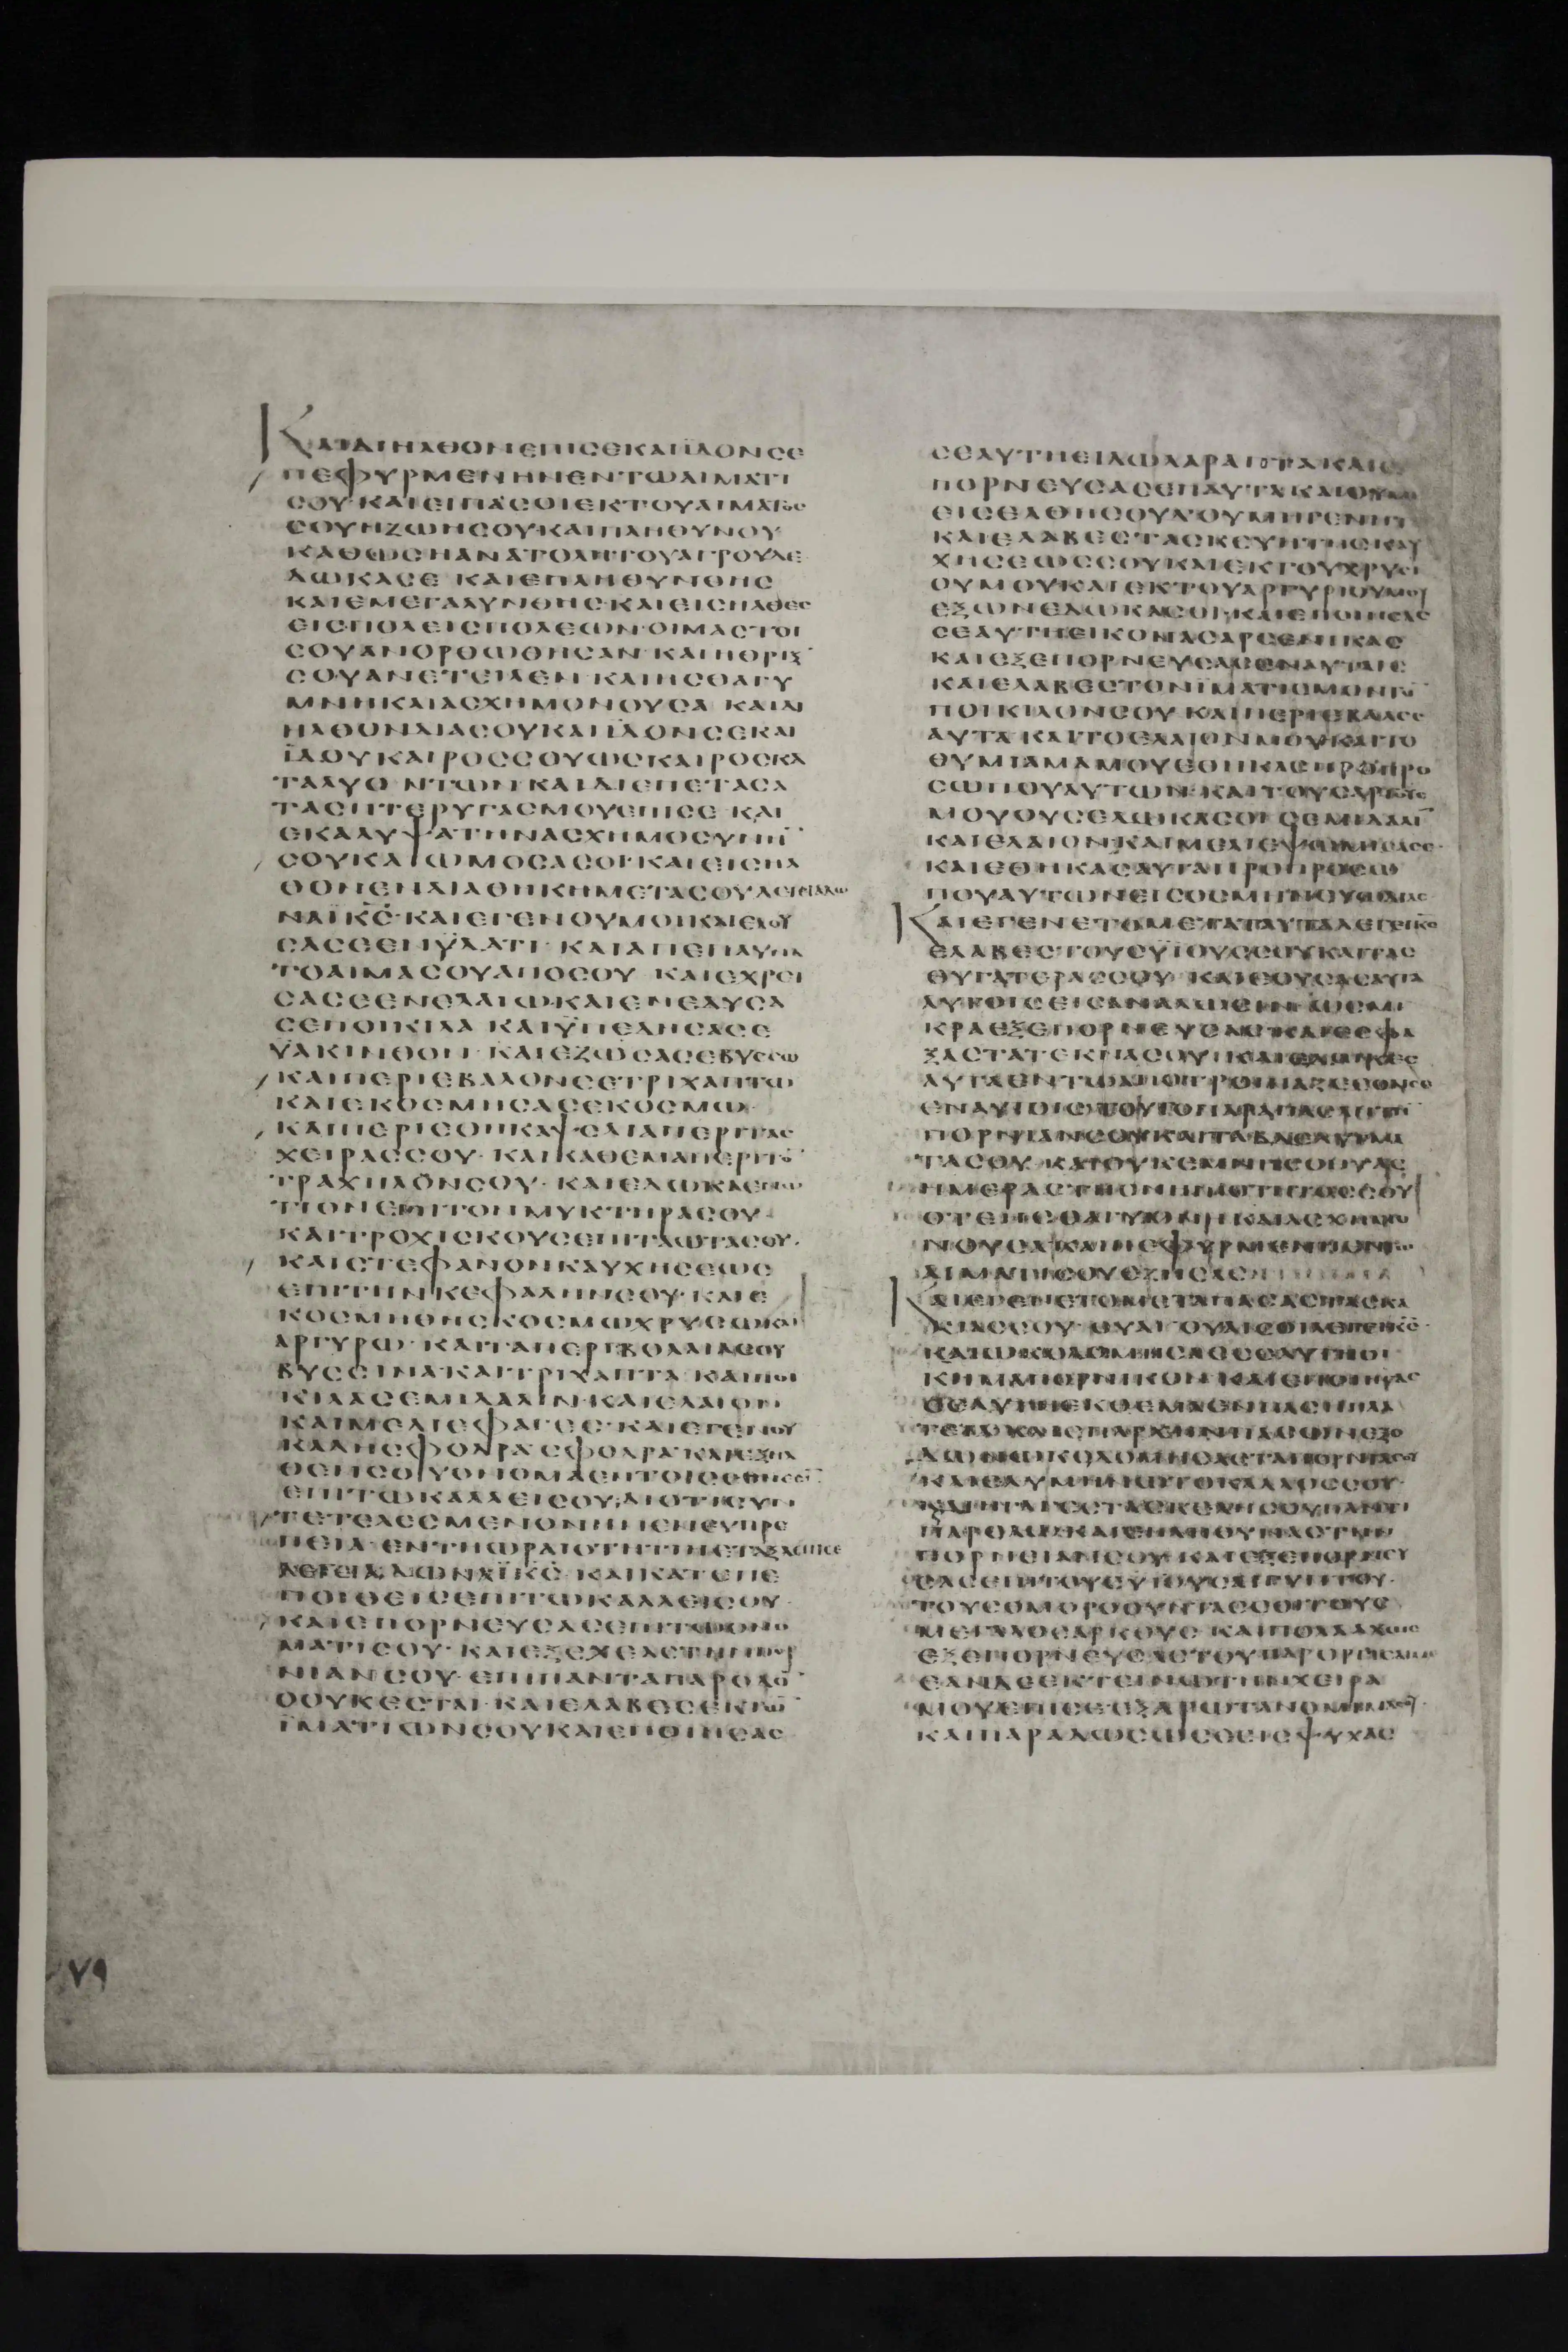 ΚΑΙΔΙΗΛΘΟΝΕΠΙΣΕΚΑΙΪΔΟΝΣΕ
ΠΕΦΥΡΜΕΝΗΝΕΝΤΩΑΙΜΑΤΙ
ΣΟΥ·ΚΑΙΕΙΠΑΣΟΙΕΚΤΟΥΑΙΜΑΤΟΣ
ΣΟΥΗΖΩΗΣΟΥΚΑΙΠΛΗΘΥΝΟΥ
ΚΑΘΩΣΗΑΝΑΤΟΛΗΤΟΥΑΓΡΟΥΔΕ
ΔΩΚΑΣΕ ΚΑΙΕΠΛΗΘΥΝΘΗΣ
ΚΑΙΕΜΕΓΑΛΥΝΘΗΣ·ΚΑΙΕΙΣΗΛΘΕΣ
ΕΙΣΠΟΛΕΙΣΠΟΛΕΩΝ·ΟΙΜΑΣΤΟΙ
ΣΟΥΑΝΟΡΘΩΘΗΣΑΝ·ΚΑΙΗΘΡΙΞ
ΣΟΥΑΝΕΤΕΙΛΕΝ·ΚΑΙΗΣΘΑΓΥ
ΜΝΗΚΑΙΑΣΧΗΜΟΝΟΥΣΑ ΚΑΙΔΙ
ΗΛΘΟΝΔΙΑΣΟΥΚΑΙΪΔΟΝΣΕΚΑΙ
ΪΔΟΥΚΑΙΡΟΣΣΟΥΩΣΚΑΙΡΟΣΚΑ
ΤΑΛΥΟ ΝΤΩΝ·ΚΑΙΔΙΕΠΕΤΑΣΑ
ΤΑΣΠΤΕΡΥΓΑΣΜΟΥΕΠΙΣΕ ΚΑΙ
ΕΚΑΛΥΨΑΤΗΝΑΣΧΗΜΟΣΥΝΗ̅
ΣΟΥΚΑΙΩΜΟΣΑΣΟΙ·ΚΑΙΕΙΣΗΛ
ΘΟΝΕΝΔΙΑΘΗΚΗΜΕΤΑΣΟΥΛΕΓΕΙΑΔΩ
ΝΑΪΚ̅Σ̅·ΚΑΙΕΓΕΝΟΥΜΟΙΚΑΙΕΛΟΥ
ΣΑΣΕΕΝΫΔΑΤΙ·ΚΑΙΑΠΕΠΛΥΝΑ
ΤΟΑΙΜΑΣΟΥΑΠΟΣΟΥ ΚΑΙΕΧΡΕΙ
ΣΑΣΕΕΝΕΛΑΙΩ·ΚΑΙΕΝΕΔΥΣΑ
ΣΕΠΟΙΚΙΛΑ ΚΑΙΫΠΕΔΗΣΑΣΕ
ΫΑΚΙΝΘΟΝ·ΚΑΙΕΖΩΣΑΣΕΒΥΣΣΩ
ΚΑΙΠΕΡΙΕΒΑΛΟΝΣΕΤΡΙΧΑΠΤΩ
ΚΑΙΕΚΟΣΜΗΣΑΣΕΚΟΣΜΩ·
ΚΑΙΠΕΡΙΕΘΗΚΑΨΕΛΙΑΠΕΡΙΤΑΣ
ΧΕΙΡΑΣΣΟΥ·ΚΑΙΚΑΘΕΜΑΠΕΡΙΤΟ̅
ΤΡΑΧΗΛΟΝΣΟΥ·ΚΑΙΕΔΩΚΑΕΝΩ
ΤΙΟΝΕΠΙΤΟΝΜΥΚΤΗΡΑΣΟΥ·
ΚΑΙΤΡΟΧΙΣΚΟΥΣΕΠΙΤΑΩΤΑΣΟΥ·
ΚΑΙΣΤΕΦΑΝΟΝΚΑΥΧΗΣΕΩΣ
ΕΠΙΤΗΝΚΕΦΑΛΗΝΣΟΥ·ΚΑΙΕ
ΚΟΣΜΗΘΗΣΚΟΣΜΩΧΡΥΣΩΚΑΙ
ΑΡΓΥΡΩ·ΚΑΙΤΑΠΕΡΙΒΟΛΑΙΑΣΟΥ
ΒΥΣΣΙΝΑΚΑΙΤΡΙΧΑΠΤΑ·ΚΑΙΠΟΙ
ΚΙΛΑΣΕΜΙΔΑΛΙΝ·ΚΑΙΕΛΑΙΟΝ
ΚΑΙΜΕΛΙΕΦΑΓΕΣ·ΚΑΙΕΓΕΝΟΥ
ΚΑΛΗΣΦΟΔΡΑΣΦΟΔΡΑ·ΚΑΙΕΞΗΛ
ΘΕΝΣΟΥΟΝΟΜΑΕΝΤΟΙΣΕΘΝΕΣΕΙ̅
ΕΠΙΤΩΚΑΛΛΕΙΣΟΥ·ΔΙΟΤΙΣΥΝ
ΤΕΤΕΛΕΣΜΕΝΟΝΗΝΕΝΕΥΠΡΕ
ΠΕΙΑ·ΕΝΤΗΩΡΑΙΟΤΗΤΙΗΕΤΑΞΑΕΠΙΣΕ
ΛΕΓΕΙΑΔΩΝΑΪΚ̅Σ̅·ΚΑΙΚΑΤΕΠΕ
ΠΟΙΘΕΙΣΕΠΙΤΩΚΑΛΛΕΙΣΟΥ·
ΚΑΙΕΠΟΡΝΕΥΣΑΣΕΠΙΤΩΟΝΟ
ΜΑΤΙΣΟΥ·ΚΑΙΕΞΕΧΕΑΣΤΗΝΠΟΡ
ΝΙΑΝΣΟΥ·ΕΠΙΠΑΝΤΑΠΑΡΟΔΟ̅
ΟΟΥΚΕΣΤΑΙ·ΚΑΙΕΛΑΒΕΣΕΚΤΩ̅
ΪΜΑΤΙΩΝΣΟΥΚΑΙΕΠΟΙΗΣΑΣ
ΣΕΑΥΤΗΕΙΔΩΛΑΡΑΠΤΑΚΑΙΕ
ΠΟΡΝΕΥΣΑΣΕΠΑΥΤΑΚΑΙΟΥΜΗ
ΕΙΣΕΛΘΗΣΟΥΔΟΥΜΗΓΕΝΗΤ
ΚΑΙΕΛΑΒΕΣΤΑΣΚΕΥΗΤΗΣΚΑΥ
ΧΗΣΕΩΣΣΟΥΚΑΙΕΚΤΟΥΧΡΥΣΙ
ΟΥΜΟΥΚΑΙΕΚΤΟΥΑΡΓΥΡΙΟΥΜΟΥ
ΕΞΩΝΕΔΩΚΑΣΟΙ·ΚΑΙΕΠΟΙΗΣΑΣ
ΣΕΑΥΤΗΕΙΚΟΝΑΣΑΡΣΕΝΙΚΑΣ
ΚΑΙΕΞΕΠΟΡΝΕΥΣΑΣΕΝΑΥΤΑΙΣ
ΚΑΙΕΛΑΒΕΣΤΟΝΪΜΑΤΙΣΜΟΝΤΟ̅
ΠΟΙΚΙΛΟΝΣΟΥ·ΚΑΙΠΕΡΙΕΒΑΛΕΣ
ΑΥΤΑ·ΚΑΙΤΟΕΛΑΙΟΝΜΟΥΚΑΙΤΟ
ΘΥΜΙΑΜΑΜΟΥΕΘΗΚΑΣΠΡΟΠΡΟ
ΣΩΠΟΥΑΥΤΩΝ·ΚΑΙΤΟΥΣΑΡΤΟΥΣ
ΜΟΥΟΥΣΕΔΩΚΑΣΟΙ·ΣΕΜΙΔΑΛΙ̅
ΚΑΙΕΛΑΙΟΝ·ΚΑΙΜΕΛΙΕΨΩΜΙΣΑΣΕ·
ΚΑΙΕΘΗΚΑΣΑΥΤΑΠΡΟΠΡΟΣΩ
ΠΟΥΑΥΤΩΝΕΙΣΟΣΜΗΝΕΥΩΔΙΑΣ
ΚΑΙΕΓΕΝΕΤΟΜΕΤΑΤΑΥΤΑΛΕΓΕΙΚ̅Σ̅
ΕΛΑΒΕΣΤΟΥΣΫΙΟΥΣΣΟΥΚΑΙΤΑΣ
ΘΥΓΑΤΕΡΑΣΣΟΥ· ΚΑΙΕΘΥΣΑΣΑΥΤΑ
ΑΥΤΟΙΣΕΙΣΑΝΑΛΩΣΙΝ·ΩΣΜΙ
ΚΡΑΕΞΕΠΟΡΝΕΥΣΑΣΚΑΙΕΣΦΑ
ΞΑΣΤΑΤΕΚΝΑΣΟΥ·ΚΑΙΕΔΩΚΑΣ
ΑΥΤΑΕΝΤΩΑΠΟΤΡΟΠΙΑΖΕΣΘΑΙΣΕ
ΕΝΑΥΤΟΙΣΤΟΥΤΟΠΑΡΑΠΑΣΑΝΤΗ̅
ΠΟΡΝΙΑΝΣΟΥΚΑΙΤΑΒΔΕΛΥΓΜΑ
ΤΑΣΟΥ ΚΑΙΟΥΚΕΜΝΗΣΘΗΣ
ΗΜΕΡΑΣΤΗΣΝΗΠΙΟΤΗΤΟΣΣΟΥ
ΟΤΕΗΣΘΑΓΥΜΝΗΚΑΙΑΣΧΗΜΟ
ΝΟΥΣΑ·ΚΑΙΠΕΦΥΡΜΕΝΗΕΝΤΩ
ΑΙΜΑΤΙΣΟΥΕΖΗΣΑΣ
ΚΑΙΕΓΕΝΕΤΟΜΕΤΑΠΑΣΑΣΤΑΣΚΑ
ΚΙΑΣΣΟΥ·ΟΥΑΙΟΥΑΙΣΟΙΛΕΓΕΙΚ̅Σ̅·
ΚΑΙΩΚΟΔΟΜΗΣΑΣΣΕΑΥΤΗΟΙ
ΚΗΜΑΠΟΡΝΙΚΟΝ·ΚΑΙΕΠΟΙΗΣΑΣ
ΣΕΑΥΤΗΕΚΘΕΜΑΕΝΠΑΣΗΠΛΑ
ΤΕΙΑ·ΚΑΙΕΠΑΡΧΗΝΠΑΣΗΣΕΞΟ
ΔΟΥΩΚΟΔΟΜΗΣΑΣΤΑΠΟΡΝΙΑΣΟΥ
ΚΑΙΕΛΥΜΗΝΩΤΟΚΑΛΛΟΣΣΟΥ·
ΚΑΙΔΙΗΓΑΓΕΣΤΑΣΚΕΛΗΣΟΥΠΑΝΤΙ
ΠΑΡΟΔΩ·ΚΑΙΕΠΛΗΘΥΝΑΣΤΗΝ
ΠΟΡΝΕΙΑΝΣΟΥ·ΚΑΙΕΞΕΠΟΡΝΕΥ
ΣΑΣΕΠΙΤΟΥΣΫΙΟΥΣΑΙΓΥΠΤΟΥ·
ΤΟΥΣΟΜΟΡΟΟΥΝΤΑΣΣΟΙΤΟΥΣ
ΜΕΓΑΛΟΣΑΡΚΟΥΣ·ΚΑΙΠΟΛΛΑΧΩΣ
ΕΞΕΠΟΡΝΕΥΣΑΣΤΟΥΠΑΡΟΡΓΙΣΑΙΜΕ
ΕΑΝΔΕΕΚΤΕΙΝΩΤΗΝΧΕΙΡΑ
ΜΟΥΕΠΙΣΕ·ΕΞΑΡΩΤΑΝΟΜΙΜΑΣΟΥ·
ΚΑΙΠΑΡΑΔΩΣΩΣΕΕΙΣΨΥΧΑΣ